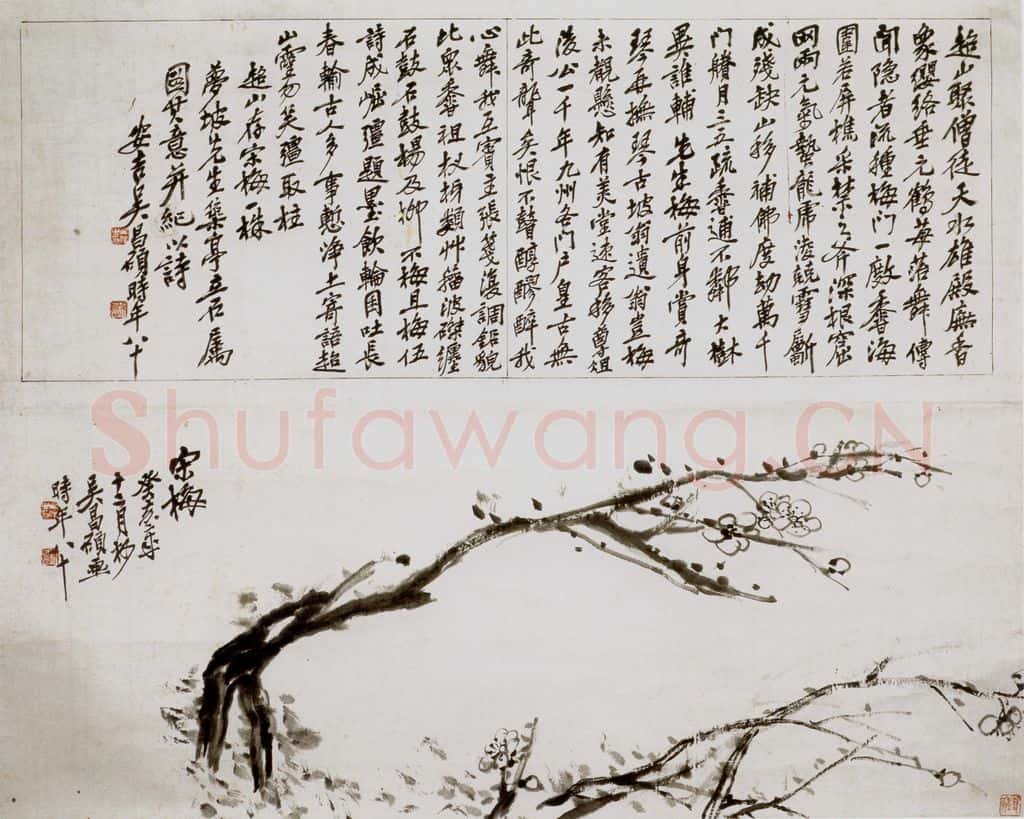 超山聚僧徒天水雄殿廡香
象瓔絡垂元鶴每落舞傳
聞隱者流種梅門一敞香海
圍若屏樵采禁之斧深根窟
网兩元氣蟄龍虎淩兢雪斸
成殘缺山移補佛度劫萬千
門月三五疏香通不鄰大樹
異誰輔先生梅前身賞奇
琴再撫琴古坡翁遺翁豈梅
未觀懸知有美堂速客移尊俎
後公一千年九州各門戶皇古無
此奇聳矣恨不聲醇醪醉我
心舞我互賓主張箋滃調鉛貌
比眾香祖杈枒類艸籀波磔纏
石鼓石鼓楊及柳不梅且梅伍
詩成崛彊題墨飲輪囷吐長
春輸古人多事慙淨土寄語超
山靈勿笑彊取柱
超山存宋梅一株
夢坡先生築亭立石屬
圖其意并紀以詩
安吉吳昌碩時年八十
Shufawang.CN
宋梅
癸亥年
十二月杪
吳昌碩畫
時年八十